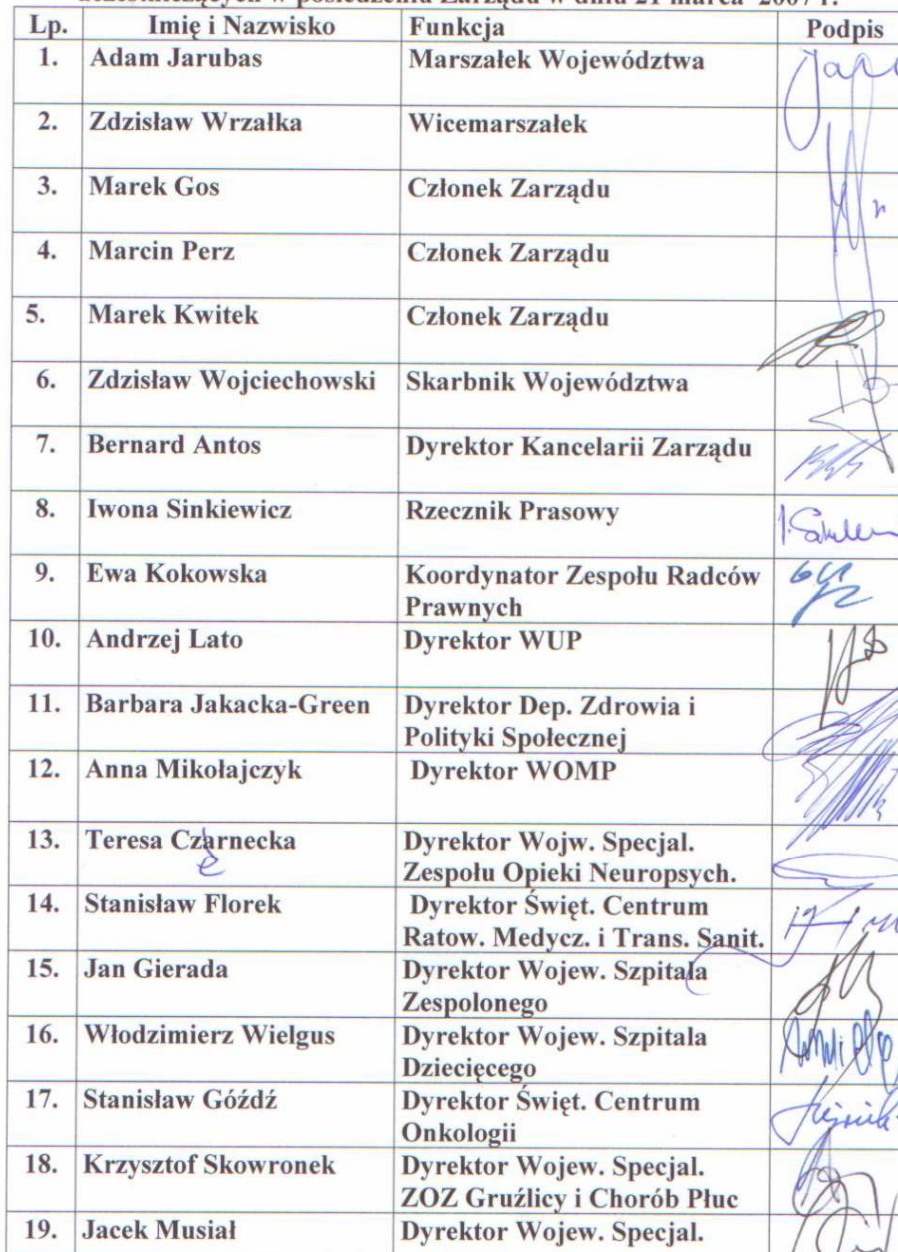 uczestniczących w posiedzeniu Zarządu w dniu 21 marca 2007 r.
Lp. Imię i Nazwisko Funkcja Podpis
1. Adam Jarubas Marszałek Województwa
2. Zdzisław Wrzałka Wicemarszałek
3. Marek Gos Członek Zarządu
4. Marcin Perz Członek Zarządu
5. Marek Kwitek Członek Zarządu
6. Zdzisław Wojciechowski Skarbnik Województwa
7. Bernard Antos Dyrektor Kancelarii Zarządu
8. Iwona Sinkiewicz Rzecznik Prasowy
9. Ewa Kokowska Koordynator Zespołu Radców
Prawnych
10. Andrzej Lato Dyrektor WUP
11. Barbara Jakacka-Green Dyrektor Dep. Zdrowia i
Polityki Społecznej
12. Anna Mikołajczyk Dyrektor WOMP
13. Teresa Czarnecka Dyrektor Wojw. Specjal.
e Zespołu Opieki Neuropsych.
14. Stanisław Florek Dyrektor Święt. Centrum
Ratow. Medycz. i Trans. Sanit.
15. Jan Gierada Dyrektor Wojew. Szpitala
Zespolonego
16. Włodzimierz Wielgus Dyrektor Wojew. Szpitala
Dziecięcego
17. Stanisław Góźdź Dyrektor Święt. Centrum
Onkologii
18. Krzysztof Skowronek Dyrektor Wojew. Specjal.
ZOZ Gruźlicy i Chorób Płuc
19. Jacek Musiał Dyrektor Wojew. Specjal.